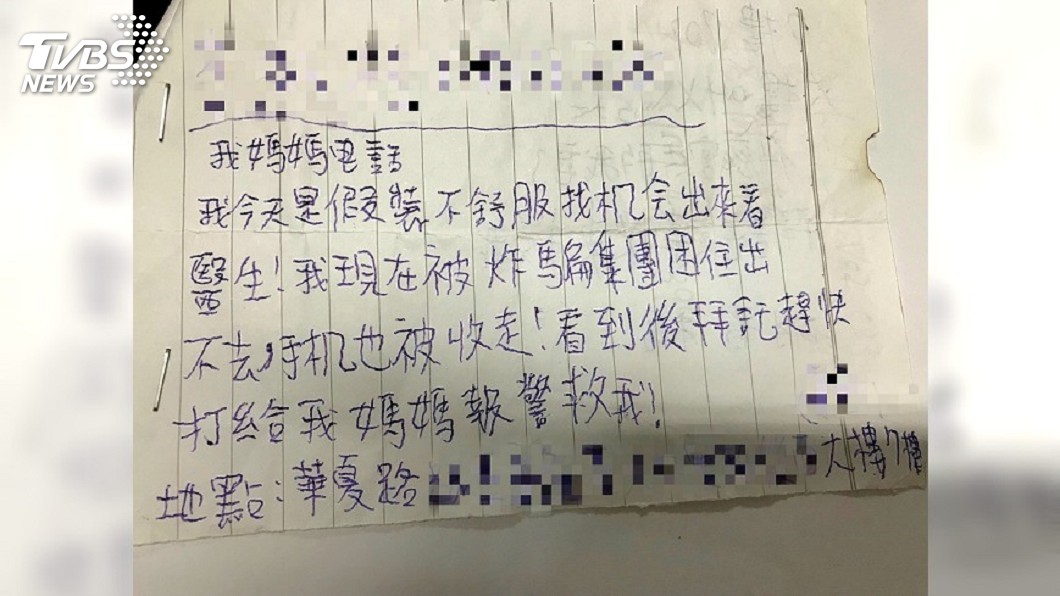 TVBS
NEWS
我媽媽电話
我今天是假裝不舒服找机会出來看
醫生!我現在被炸騙集團困住出
不去手机也被收走!看到後拜託趕快
打給我媽媽報警救我!
地點:華夏路 大樓7樓